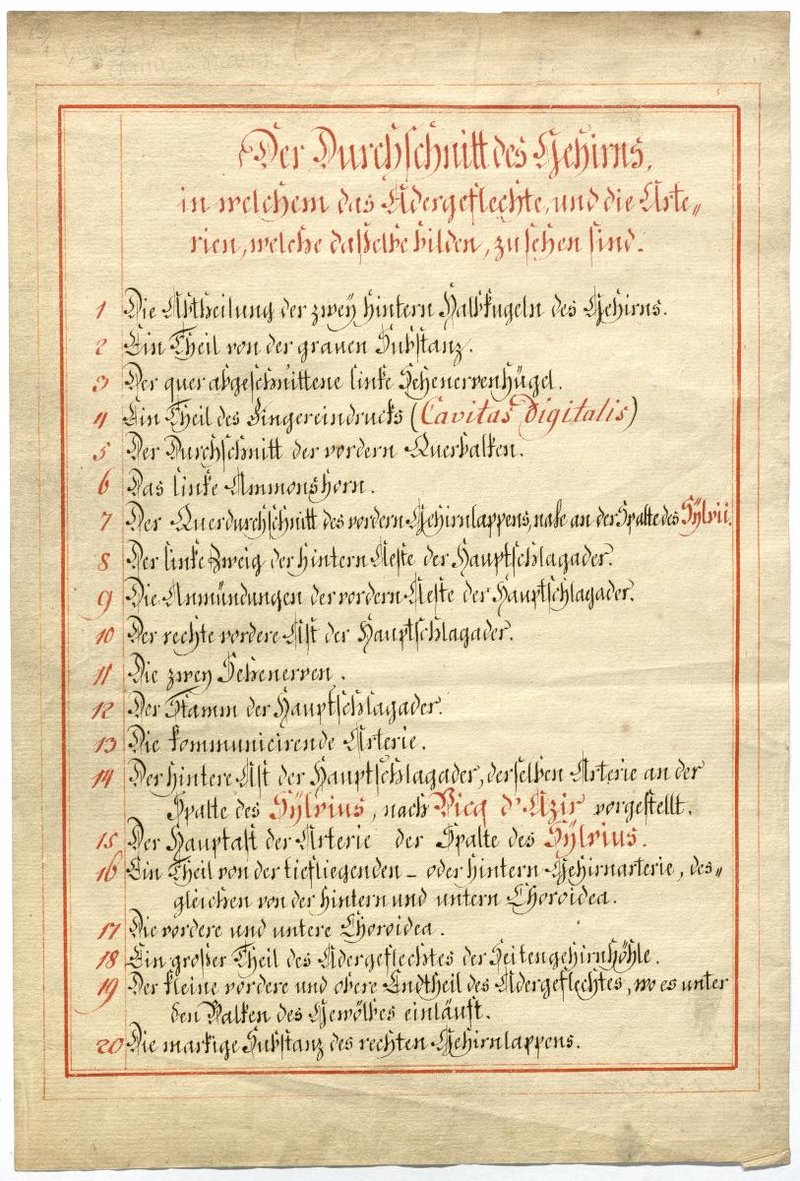 Der Durchschnitt des Gehirns,
in welchem das Adergeflechte, und die Arte„
rien, welche daßelbe bilden, zu sehen sind.
1 Die Abtheilung der zwey hintern Halbkugeln des Gehirns.
2 Ein Theil von der grauen Substanz.
3 Der quer abgeschnittene linke Sehenervenhügel.
4 Ein Theil des Fingereindrucks (Cavitas Digitalis)
5 Der Durchschnitt der vordern Querbalken.
6 Das linke Ammonshorn.
7 Der Querdurchschnitt des vordern Gehirnlappens, nahe an der Spalte des Sÿlvii.
8 Der linke Zweig der hintern Aeste der Hauptschlagader.
9 Die Anmündungen der vordern Aeste der Hauptschlagader.
10 Der rechte vordere Ast der Hauptschlagader.
11 Die zwey Sehenerven.
12 Der Stamm der Hauptschlagader.
13 Die kommunicirende Arterie.
14 Der hintere Ast der Hauptschlagader, derselben Arterie an der
Spalte des Sÿlvius, nach Vicq d'Azir vorgestellt.
15 Der Hauptast der Arterie der Spalte des Sÿlvius.
16 Ein Theil von der tiefliegenden – oder hintern Gehirnarterie, des„
gleichen von der hintern und untern Choroidea.
17 Die vordere und untere Choroidea.
18 Ein großer Theil des Adergeflechtes der Seitengehirnhöhle.
19 Der kleine vordere und obere Endtheil des Adergeflechtes, wo es unter
den Balken des Gewölbes einläuft.
20 Die markige Substanz des rechten Gehirnlappens.